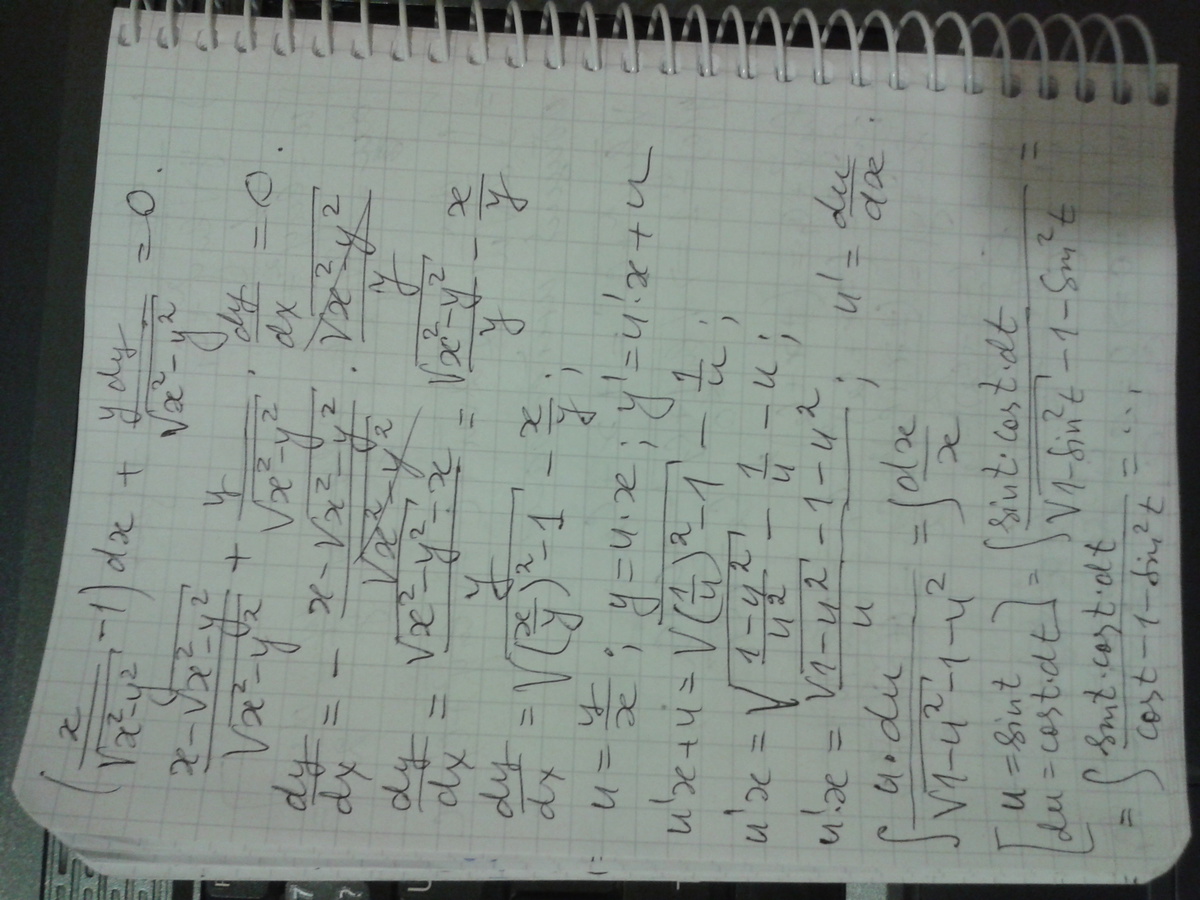 (x/√(x²-y²) - 1)dx + ydy/√(x²-y²) = 0.
(x-√(x²-y²))/√(x²-y²) + y/√(x²-y²) · dy/dx = 0.
dy/dx = - (x-√(x²-y²))/√(x²-y²) · √(x²-y²)/y
dy/dx = (√(x²-y²) - x)/y = √(x²-y²)/y - x/y
dy/dx = √((x/y)² - 1) - x/y;
u = y/x; y = u·x; y' = u'·x + u
u'x + u = √((1/u)² - 1) - 1/u;
u'x = √((1-u²)/u²) - 1/u - u;
u'·x = (√(1-u²) - 1 - u²)/u; u' = du/dx.
∫ u·du/(√(1-u²) - 1 - u²) = ∫ dx/x
[u = sint
du = cost·dt] = ∫ sint·cost·dt/(√(1-sin²t) - 1 - sin²t) =
= ∫ sint·cost·dt/(cost - 1 - sin²t) = ...